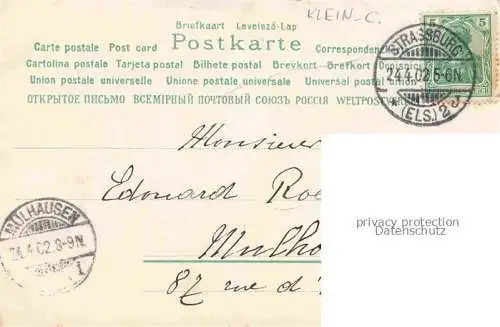 KLEIN-C.
Briefkaart Levelező-Lap
Postkarte
Carte postale Post card Corresponden
Cartolina postale Tarjeta postal Bilhete postal Brevkort Brefkort Dopisnice
Union postale universelle Unione postale universale Universal postal union
ОТКРЫТОЕ ПИСЬМО ВСЕМІРНЫЙ ПОЧТОВЫЙ СОЮЗЪ РОССІЯ WELTPOSTV
5 5
STRASSBURG
24.4.02.5-6N
* (ELS.) 2
Monsieur
Edouard Roe
Mulho
87 rue d
MÜLHAUSEN
24.4.02.8-9N.
1
privacy protection
Datenschutz